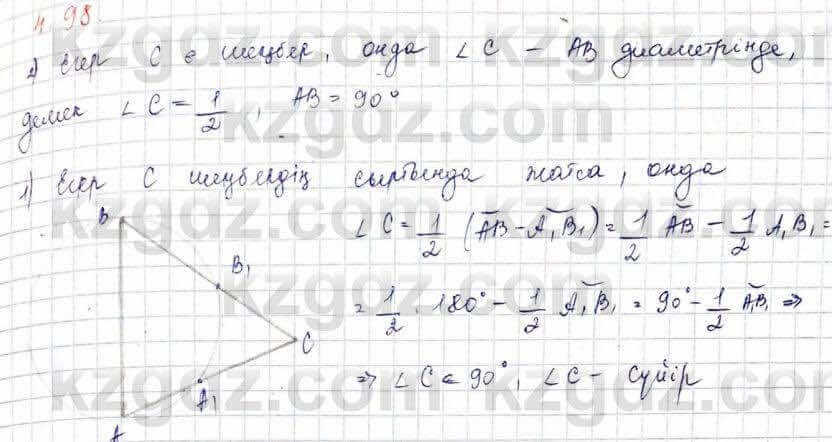 4.98.
2) Егер C ∈ шеңбер, онда ∠C - AB диаметрінде,
демек ∠C = 1/2, AB = 90°
1) Егер C шеңбердің сыртында жатса, онда
∠C = 1/2 (AB - A₁B₁) = 1/2 AB - 1/2 A₁B₁ =
= 1/2 · 180° - 1/2 A₁B₁ = 90° - 1/2 A₁B₁ ⇒
⇒ ∠C < 90°, ∠C - сүйір
B
B₁
C
A₁
A
kzgdz.com
kzgdz.com
kzgdz.com
kzgdz.com
kzgdz.com